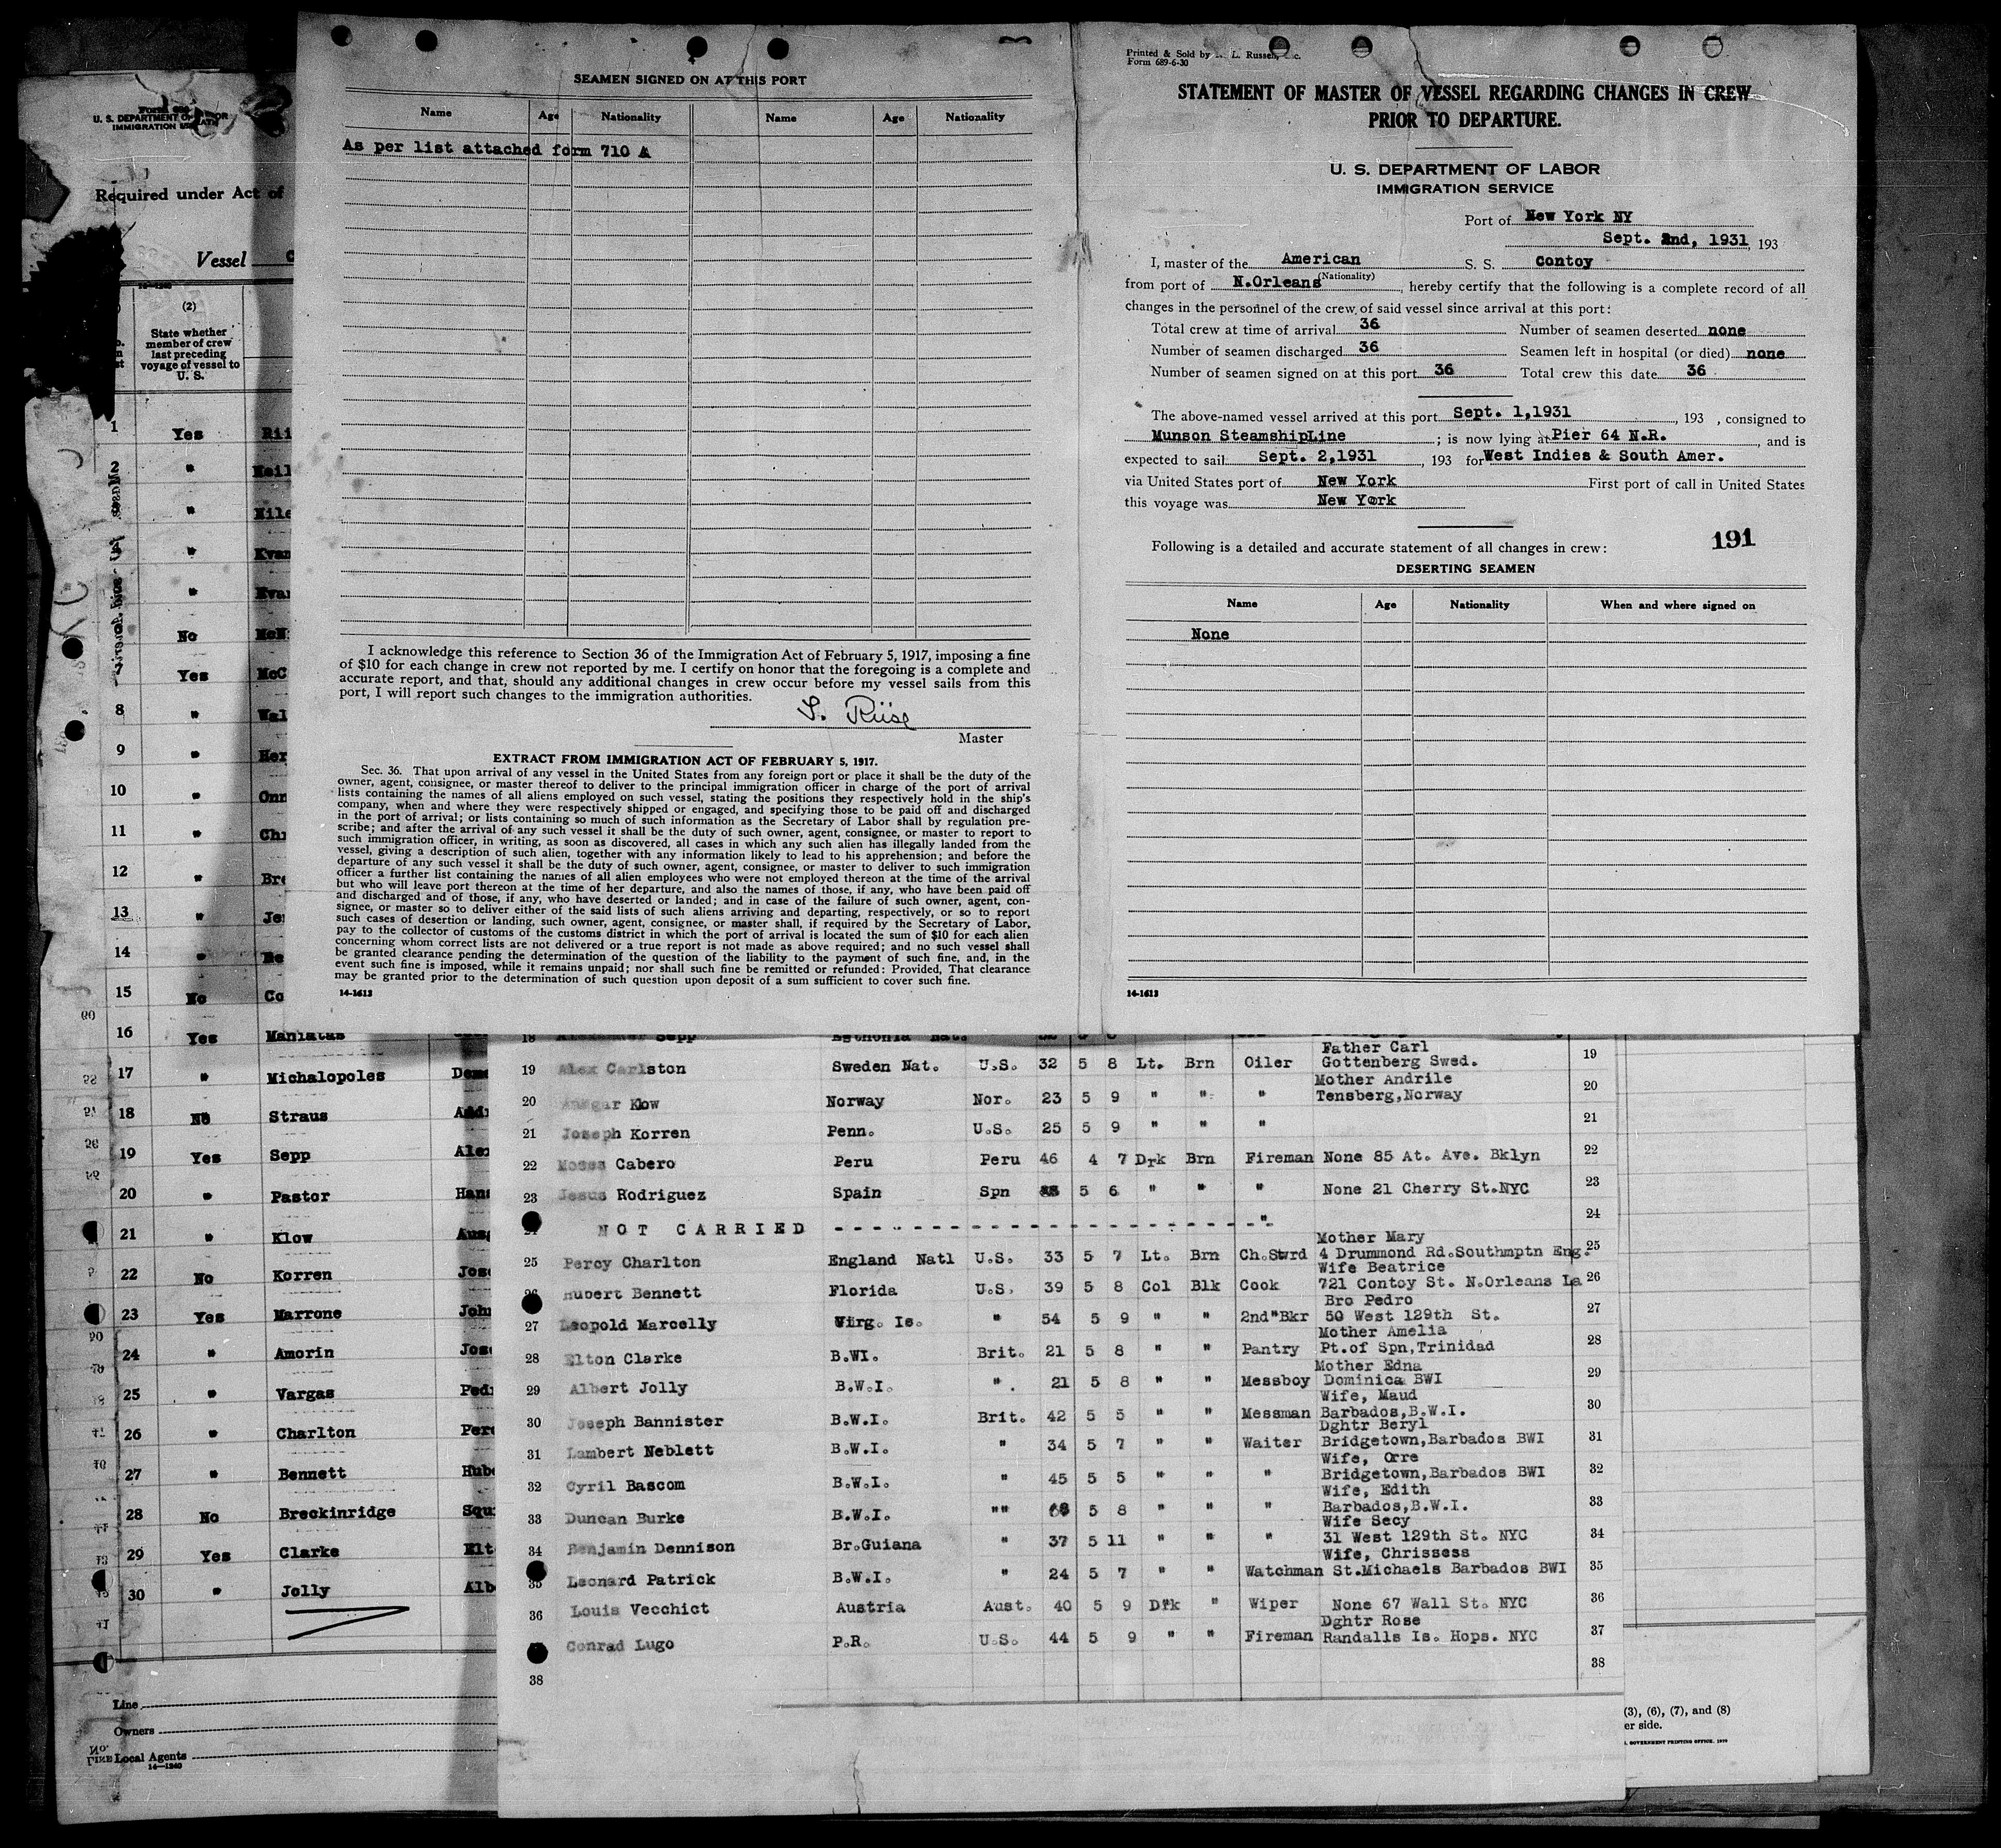 SEAMEN SIGNED ON AT THIS PORT
Name Age Nationality Name Age Nationality
As per list attached form 710 A
I acknowledge this reference to Section 36 of the Immigration Act of February 5, 1917, imposing a fine
of $10 for each change in crew not reported by me. I certify on honor that the foregoing is a complete and
accurate report, and that, should any additional changes in crew occur before my vessel sails from this
port, I will report such changes to the immigration authorities.
S. Riise
Master
EXTRACT FROM IMMIGRATION ACT OF FEBRUARY 5, 1917.
Sec. 36. That upon arrival of any vessel in the United States from any foreign port or place it shall be the duty of the
owner, agent, consignee, or master thereof to deliver to the principal immigration officer in charge of the port of arrival
lists containing the names of all aliens employed on such vessel, stating the positions they respectively hold in the ship's
company, when and where they were respectively shipped or engaged, and specifying those to be paid off and discharged
in the port of arrival; or lists containing so much of such information as the Secretary of Labor shall by regulation pre-
scribe; and after the arrival of any such vessel it shall be the duty of such owner, agent, consignee, or master to report to
such immigration officer, in writing, as soon as discovered, all cases in which any such alien has illegally landed from the
vessel, giving a description of such alien, together with any information likely to lead to his apprehension; and before the
departure of any such vessel it shall be the duty of such owner, agent, consignee, or master to deliver to such immigration
officer a further list containing the names of all alien employees who were not employed thereon at the time of the arrival
but who will leave port thereon at the time of her departure, and also the names of those, if any, who have been paid off
and discharged and of those, if any, who have deserted or landed; and in case of the failure of such owner, agent, con-
signee, or master so to deliver either of the said lists of such aliens arriving and departing, respectively, or so to report
such cases of desertion or landing, such owner, agent, consignee, or master shall, if required by the Secretary of Labor,
pay to the collector of customs of the customs district in which the port of arrival is located the sum of $10 for each alien
concerning whom correct lists are not delivered or a true report is not made as above required; and no such vessel shall
be granted clearance pending the determination of the question of the liability to the payment of such fine, and, in the
event such fine is imposed, while it remains unpaid; nor shall such fine be remitted or refunded: Provided, That clearance
may be granted prior to the determination of such question upon deposit of a sum sufficient to cover such fine.
14-1613
Printed & Sold by L. Russell,
Form 689-6-30
STATEMENT OF MASTER OF VESSEL REGARDING CHANGES IN CREW
PRIOR TO DEPARTURE.
U. S. DEPARTMENT OF LABOR
IMMIGRATION SERVICE
Port of New York NY
Sept. 2nd, 1931 193
I, master of the American S. S. Contoy
(Nationality)
from port of N.Orleans, hereby certify that the following is a complete record of all
changes in the personnel of the crew of said vessel since arrival at this port:
Total crew at time of arrival 36 Number of seamen deserted none
Number of seamen discharged 36 Seamen left in hospital (or died) none
Number of seamen signed on at this port 36 Total crew this date 36
The above-named vessel arrived at this port Sept. 1,1931, 193 , consigned to
Munson SteamshipLine ; is now lying at Pier 64 N.R. , and is
expected to sail Sept. 2,1931 , 193 for West Indies & South Amer.
via United States port of New York First port of call in United States
this voyage was New York
191
Following is a detailed and accurate statement of all changes in crew:
DESERTING SEAMEN
Name Age Nationality When and where signed on
None
14-1613
U. S. DEPARTMENT OF LABOR
IMMIGRATION
Required under Act of
Vessel C
14-1240
(2)
State whether
member of crew
last preceding
voyage of vessel to
U. S.
1 Yes Rii
2 " Neil
" Nile
" Kvam
" Evan
No McN
Yes McC
8 " Wal
9 " Her
10 " Onn
11 " Chr
12 " Bre
13 " Je
14 "
15 No Co
16 Yes Maniatas
17 " Michalopoles Deme
18 No Straus Andr
19 Yes Sepp Alex
20 " Pastor Hans
21 " Klow Ansg
22 No Korren Jose
23 Yes Marrone John
24 " Amorin Jose
25 " Vargas Pedr
26 " Charlton Perc
27 " Bennett Hube
28 No Breckinridge Squi
29 Yes Clarke Elt
30 " Jolly Alb
Line
Owners
Local Agents
14-1240
18 Alexander Sepp Esthonia Nat.
19 Alex Carlston Sweden Nat. U.S. 32 5 8 Lt. Brn Oiler Father Carl Gottenberg Swed. 19
20 Ansgar Klow Norway Nor. 23 5 9 " " " Mother Andrile Tensberg,Norway 20
21 Joseph Korren Penn. U.S. 25 5 9 " " " 21
22 Moses Cabero Peru Peru 46 4 7 Drk Brn Fireman None 85 At. Ave. Bklyn 22
23 Jesus Rodriguez Spain Spn 5 6 " " " None 21 Cherry St.NYC 23
NOT CARRIED - - - - - - - - " 24
25 Percy Charlton England Natl U.S. 33 5 7 Lt. Brn Ch.Stwrd Mother Mary 4 Drummond Rd.Southmptn Eng. 25
26 Hubert Bennett Florida U.S. 39 5 8 Col Blk Cook Wife Beatrice 721 Contoy St. N.Orleans La 26
27 Leopold Marcelly Virg. Is. " 54 5 9 " " 2nd"Bkr Bro Pedro 50 West 129th St. 27
28 Elton Clarke B.WI. Brit. 21 5 8 " " Pantry Mother Amelia Pt.of Spn,Trinidad 28
29 Albert Jolly B.W.I. ". 21 5 8 " " Messboy Mother Edna Dominica BWI 29
30 Joseph Bannister B.W.I. Brit. 42 5 5 " " Messman Wife, Maud Barbados,B.W.I. 30
31 Lambert Neblett B.W.I. " 34 5 7 " " Waiter Dghtr Beryl Bridgetown,Barbados BWI 31
32 Cyril Bascom B.W.I. " 45 5 5 " " " Wife, Orre Bridgetown,Barbados BWI 32
33 Duncan Burke B.W.I. "" 5 8 " " " Wife, Edith Barbados,B.W.I. 33
34 Benjamin Dennison Br.Guiana " 37 5 11 " " " Wife Secy 31 West 129th St. NYC 34
35 Leonard Patrick B.W.I. " 24 5 7 " " Watchman Wife, Chrissess St.Michaels Barbados BWI 35
36 Louis Vecchict Austria Aust. 40 5 9 Drk " Wiper None 67 Wall St. NYC 36
Conrad Lugo P.R. U.S. 44 5 9 " " Fireman Dghtr Rose Randalls Is. Hops. NYC 37
38 38
(3), (6), (7), and (8)
er side.
GOVERNMENT PRINTING OFFICE